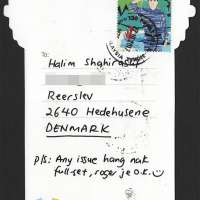 TO:
Halim Shahirashy
Reerslev
2640 Hedehusene
DENMARK
p/s: Any issue hang nak
full-set, roger je O.K.